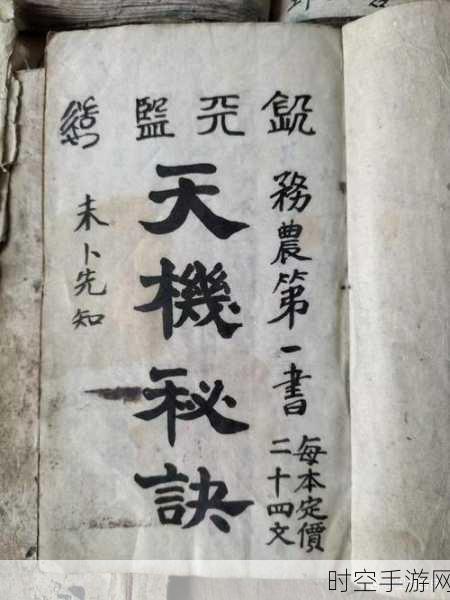 監
務農第一書
每本定價
二十四文
天機秘訣
未卜先知
时空手游网